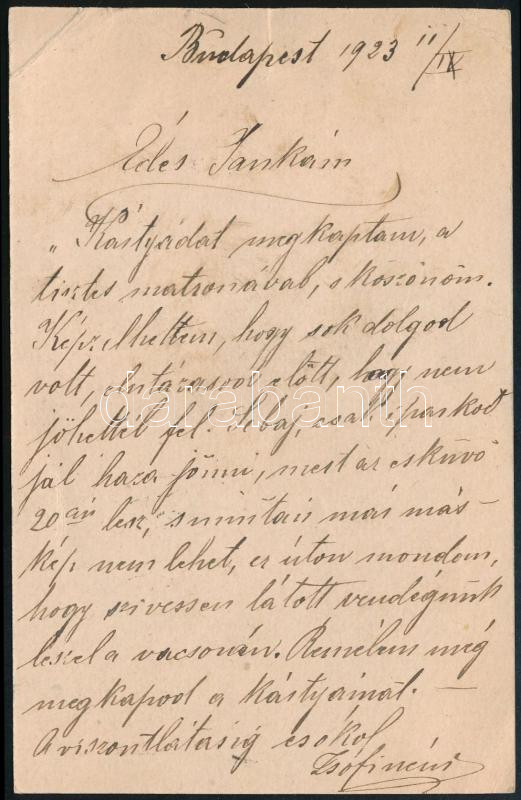 Budapest 1923 11/IV
Édes Jankám
"Kártyádat megkaptam, a
tisztes matronával, s köszönöm.
Képzelhettem, hogy sok dolgod
volt, elutazásod előtt, hogy nem
jöhettél fel. Nebaj, csak iparkod
jál haza jönni, mert az esküvő
20án lesz, s miután már más-
kép nem lehet, ez úton mondom,
hogy szivessen látott vendégünk
leszel a vacsorán. Remélem még
megkapod a kártyámat. —
A viszontlátásig csókol
Zsófinéni
darabanth